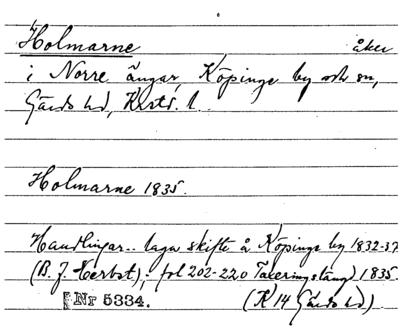 Holmarne åker
i Norre ängar, Köpinge by och sn,
Gärds hd, Krsts. l.
Holmarne 1835.
Handlingar.. laga skifte å Köpinge by 1832-37
(B. J. Herbst), fol 202-220 Taxeringslängd 1835.
Nr 5334. (K 14 Gärds hd)